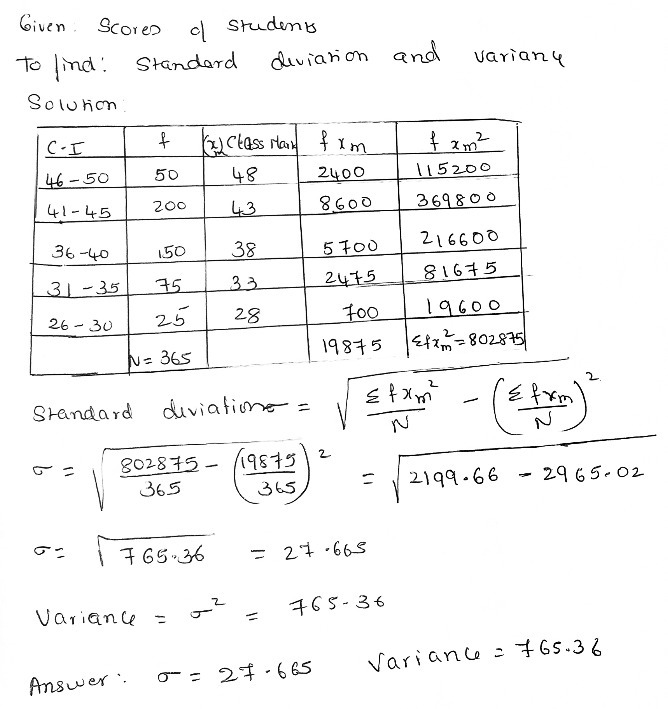 Given: Scores of students
To find: Standard deviation and variancy
Solution:
C-I f (x_m) Class Mark f x_m f x_m²
46-50 50 48 2400 115200
41-45 200 43 8600 369800
36-40 150 38 5700 216600
31-35 75 33 2475 81675
26-30 25 28 700 19600
N = 365 19875 Σfx_m² = 802875
Standard deviation = √(Σfx_m²/N - (Σfx_m/N)²)
σ = √(802875/365 - (19875/365)²) = √(2199.66 - 2965.02)
σ = √765.36 = 27.665
Variance = σ² = 765.36
Answer: σ = 27.665 Variance = 765.36